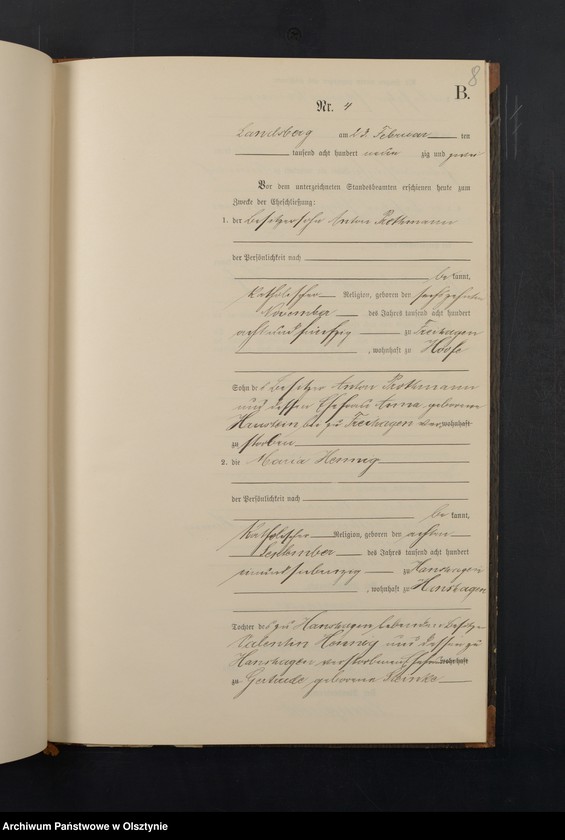 8
B.
Nr. 4
Landsberg am 22. Februar ten
tausend acht hundert neun zig und zwei
Vor dem unterzeichneten Standesbeamten erschienen heute zum
Zwecke der Eheschließung:
1. der Besitzersohn Anton Rothmann
der Persönlichkeit nach
be kannt,
katholischer Religion, geboren der sechszehnten
November des Jahres tausend acht hundert
acht und fünfzig zu Freihagen
, wohnhaft zu Hoofe
Sohn des Besitzer Anton Rothmann
und dessen Ehefrau Anna geborene
beide zu Freihagen ver wohnhaft
zu storben
2. die Maria Hennig
der Persönlichkeit nach
be kannt,
katholischer Religion, geboren den achten
September des Jahres tausend acht hundert
ein und siebenzig zu Hanshagen
, wohnhaft zu Hanshagen
Tochter des zu Hanshagen lebenden Besitzer
Valentin Hennig und dessen zu
Hanshagen verstorbenen Ehefrau wohnhaft
zu Gertrude geborene
Archiwum Państwowe w Olsztynie